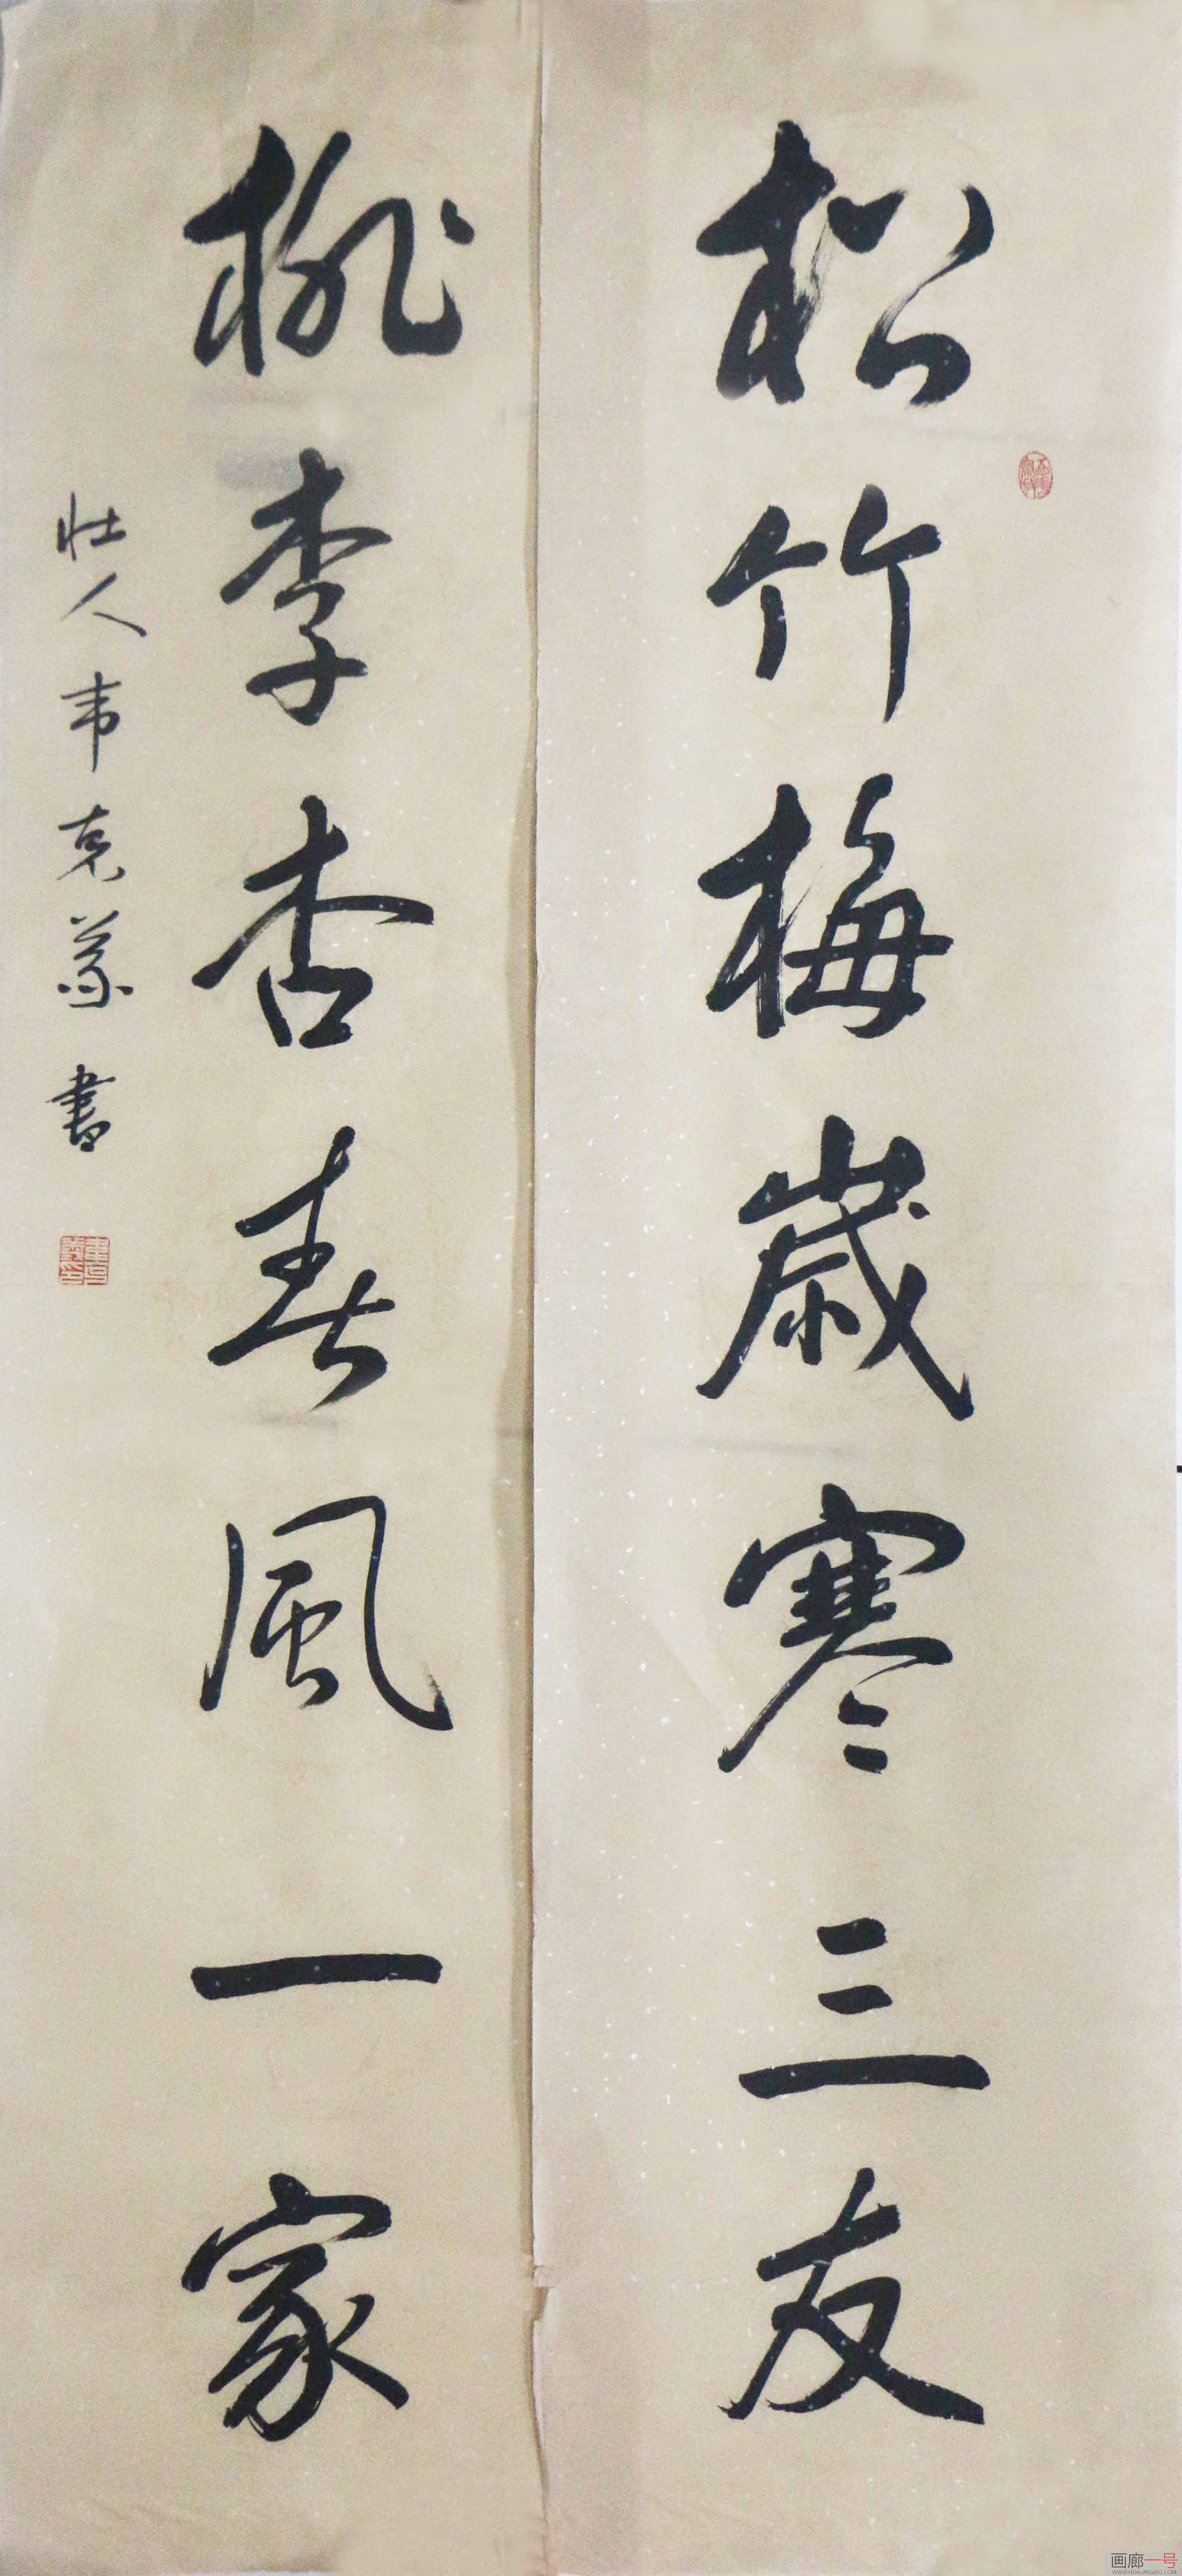 松竹梅歲寒三友
桃李杏春風一家
壮人韦克義書
画廊一号
WWW.HUALANG01.COM